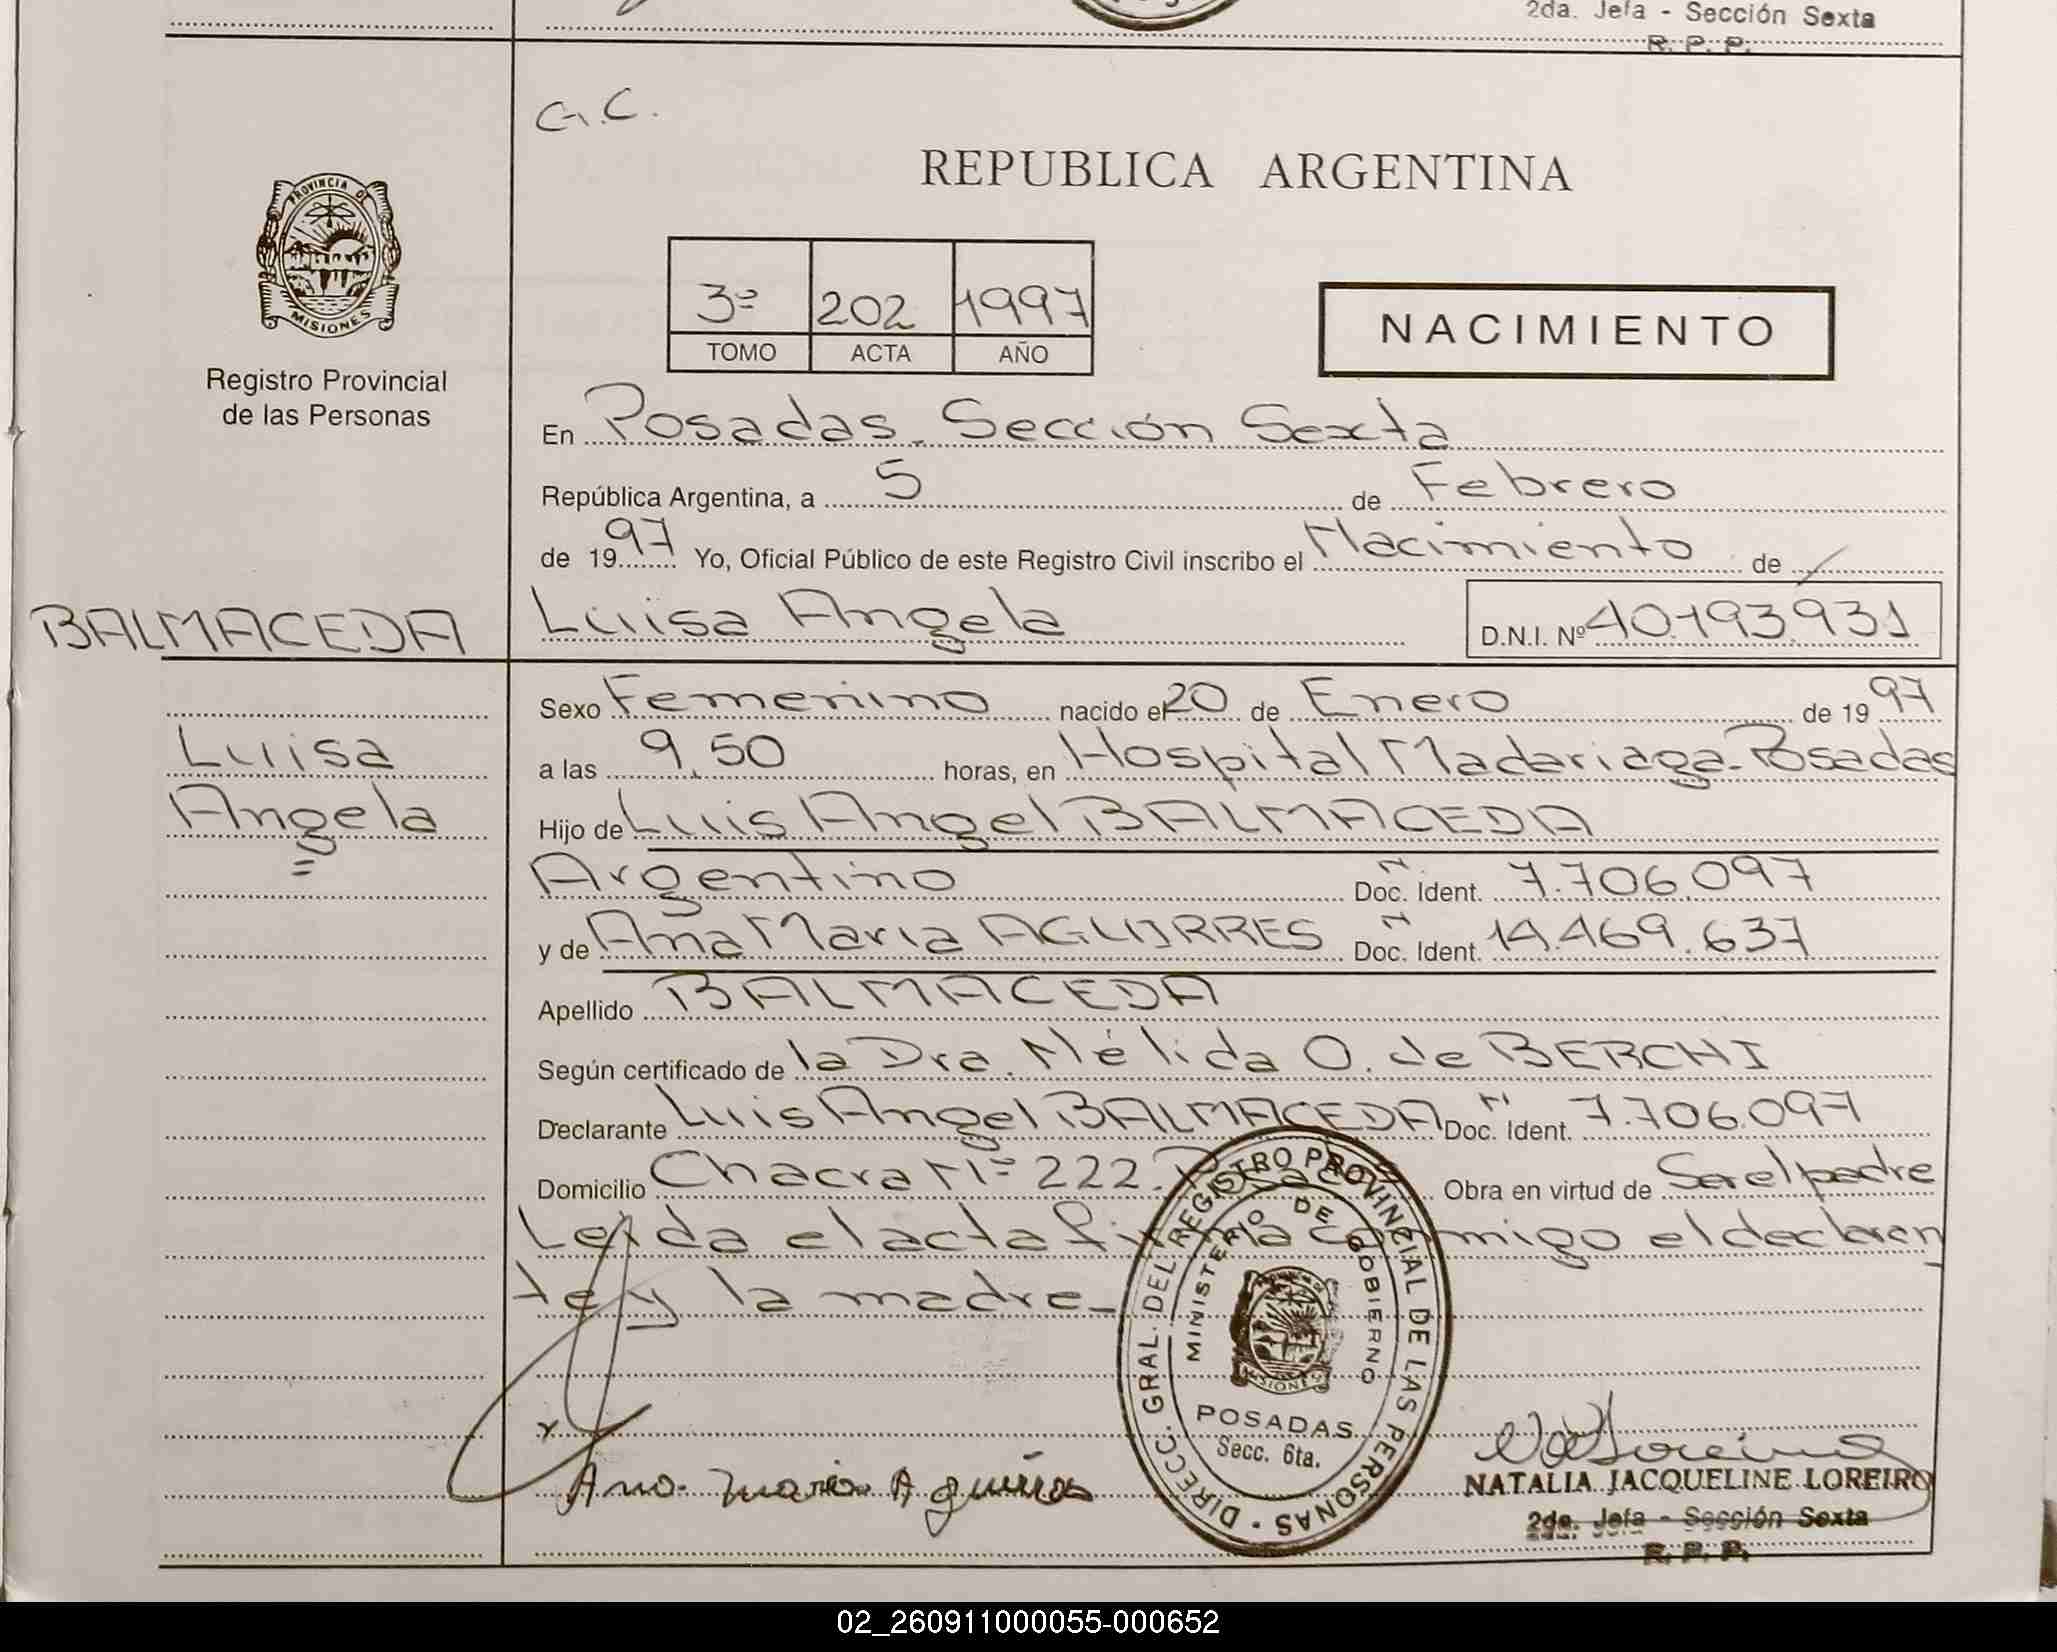 2da. Jefa - Sección Sexta
R. P. P.
G.C.
REPUBLICA ARGENTINA
PROVINCIA DE
MISIONES
Registro Provincial
de las Personas
3º 202 1997
TOMO ACTA AÑO
NACIMIENTO
En Posadas. Sección Sexta
República Argentina, a 5 de Febrero
de 1997 Yo, Oficial Público de este Registro Civil inscribo el Nacimiento de
BALMACEDA Luisa Angela D.N.I. Nº 40.193.931
Sexo Femenino nacido el 20 de Enero de 1997
Luisa
a las 9,50 horas, en Hospital Madariaga-Posadas
Angela
Hijo de Luis Angel BALMACEDA
Argentino Doc. Ident. N 7.706.097
y de Ana Maria AGUIRRES Doc. Ident. N 14.469.637
Apellido BALMACEDA
Según certificado de la Dra. Nélida O. de BERCHI
Declarante Luis Angel BALMACEDA Doc. Ident. N 7.706.097
Domicilio Chacra Nº 222. Posadas Obra en virtud de Ser el padre
Leída el acta firma conmigo el declaran
te y la madre-
DIRECC. GRAL. DEL REGISTRO PROVINCIAL DE LAS PERSONAS
MINISTERIO DE GOBIERNO
MISIONES
POSADAS
Secc. 6ta.
Ana Maria Aguirres
NATALIA JACQUELINE LOREIRO
2da. Jefa - Sección Sexta
R. P. P.
02_260911000055-000652